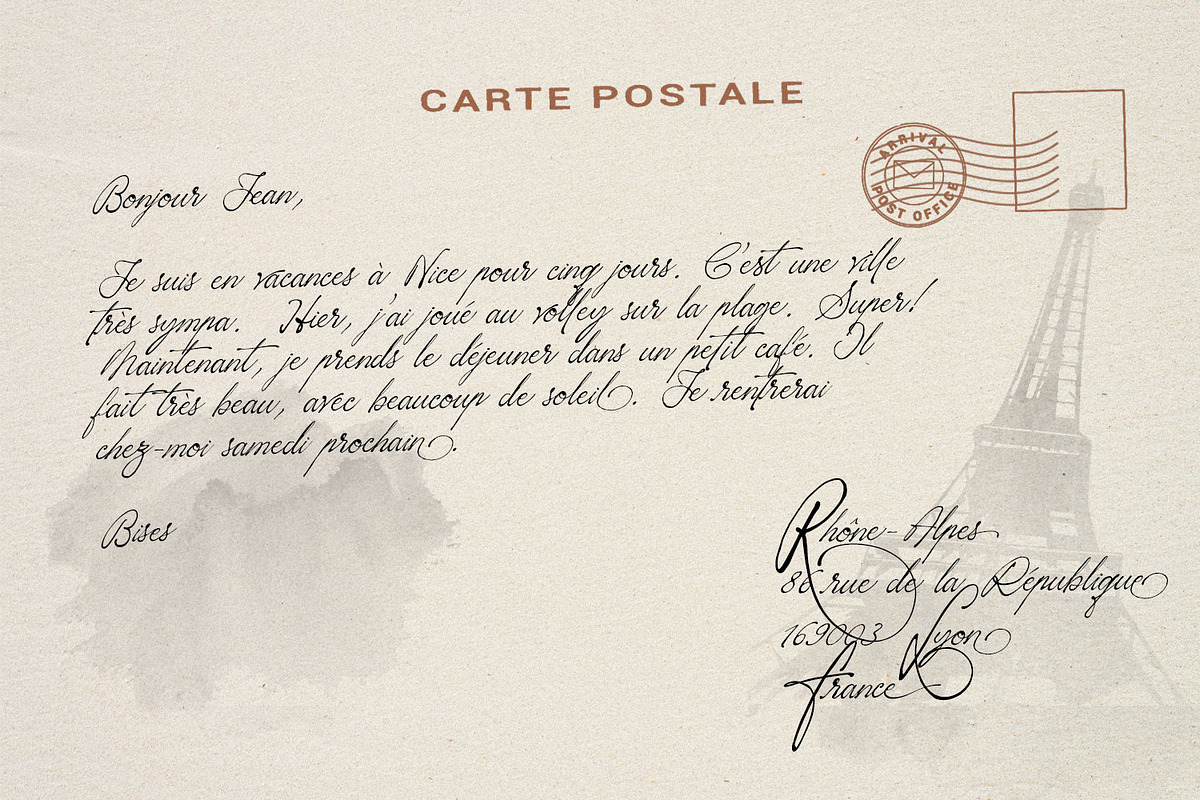 CARTE POSTALE
ARRIVAL
POST OFFICE
Bonjour Jean,
Je suis en vacances à Nice pour cinq jours. C'est une ville
très sympa. Hier, j'ai joué au volley sur la plage. Super!
Maintenant, je prends le déjeuner dans un petit café. Il
fait très beau, avec beaucoup de soleil. Je rentrerai
chez-moi samedi prochain.
Bises
Rhône-Alpes
86 rue de la République
169003 Lyon
france